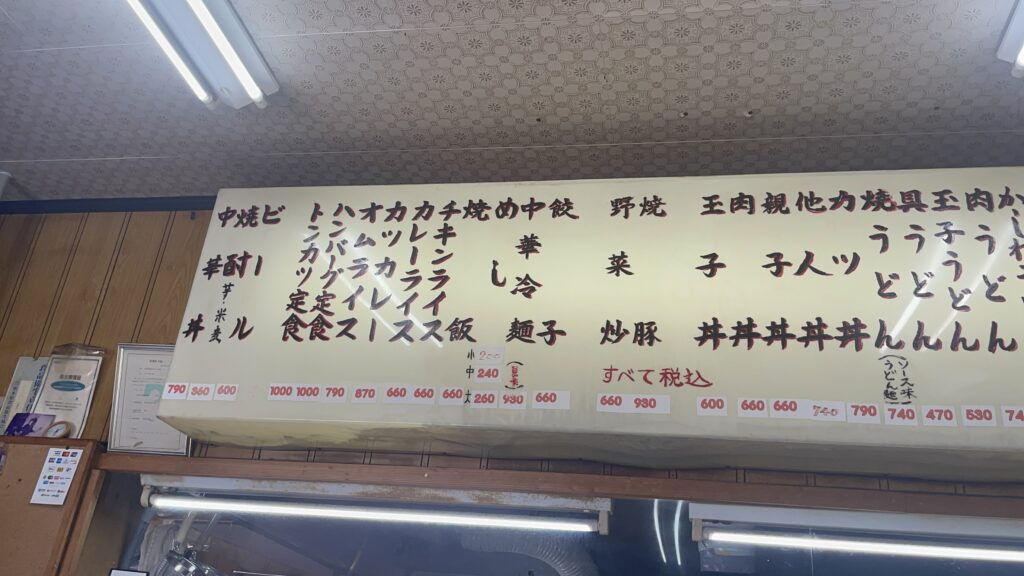 かしわう
肉うどん
74
玉子うどん
530
具うどん
470
焼うどん
(ソース味
うどん麺)
740
カツ丼
790
他人丼
740
親子丼
660
肉丼
660
玉子丼
600
焼豚
930
野菜炒
660
すべて税込
餃子
660
中華冷麺
930
めし
小 200
中 240
大 260
焼飯
660
チキンライス
660
カレーライス
660
カツカレー
870
オムライス
790
ハンバーグ定食
1000
トンカツ定食
1000
ビール
600
焼酎
芋・米
麦
360
中華丼
790